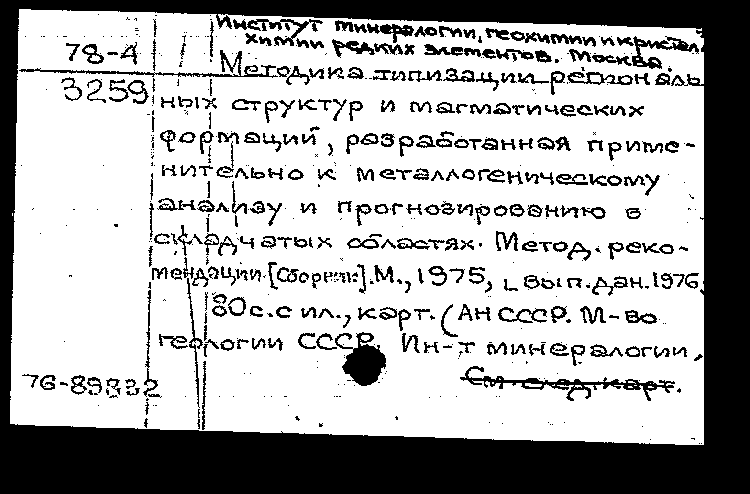 Институт минералогии, геохимии и кристал
78-4 химии редких элементов. Москва.
Методика типизации региональ
3259 ных структур и магматических
формаций, разработанная приме-
нительно к металлогеническому
анализу и прогнозированию в
складчатых областях. Метод. реко-
мендации. [Сборник]. М., 1975, [вып. дан. 1976,
80 с. с ил., карт. (АН СССР. М-во
геологии СССР. Ин-т минералогии,
76-89832 См след. карт.